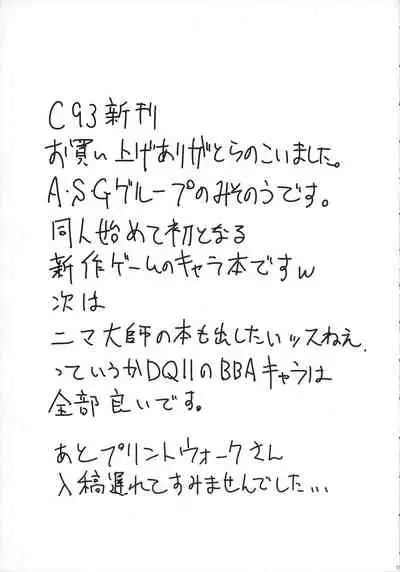 C93新刊
お買い上げありがとうのこいました。
A・SGグループのみそのうです。
同人始めて初となる
新作ゲームのキャラ本ですw
次は
ニマ大師の本も出したいッスねえ、
っていうかDQ11のBBAキャラは
全部良いです。
あとプリントウォークさん
入稿遅れてすみませんでした...